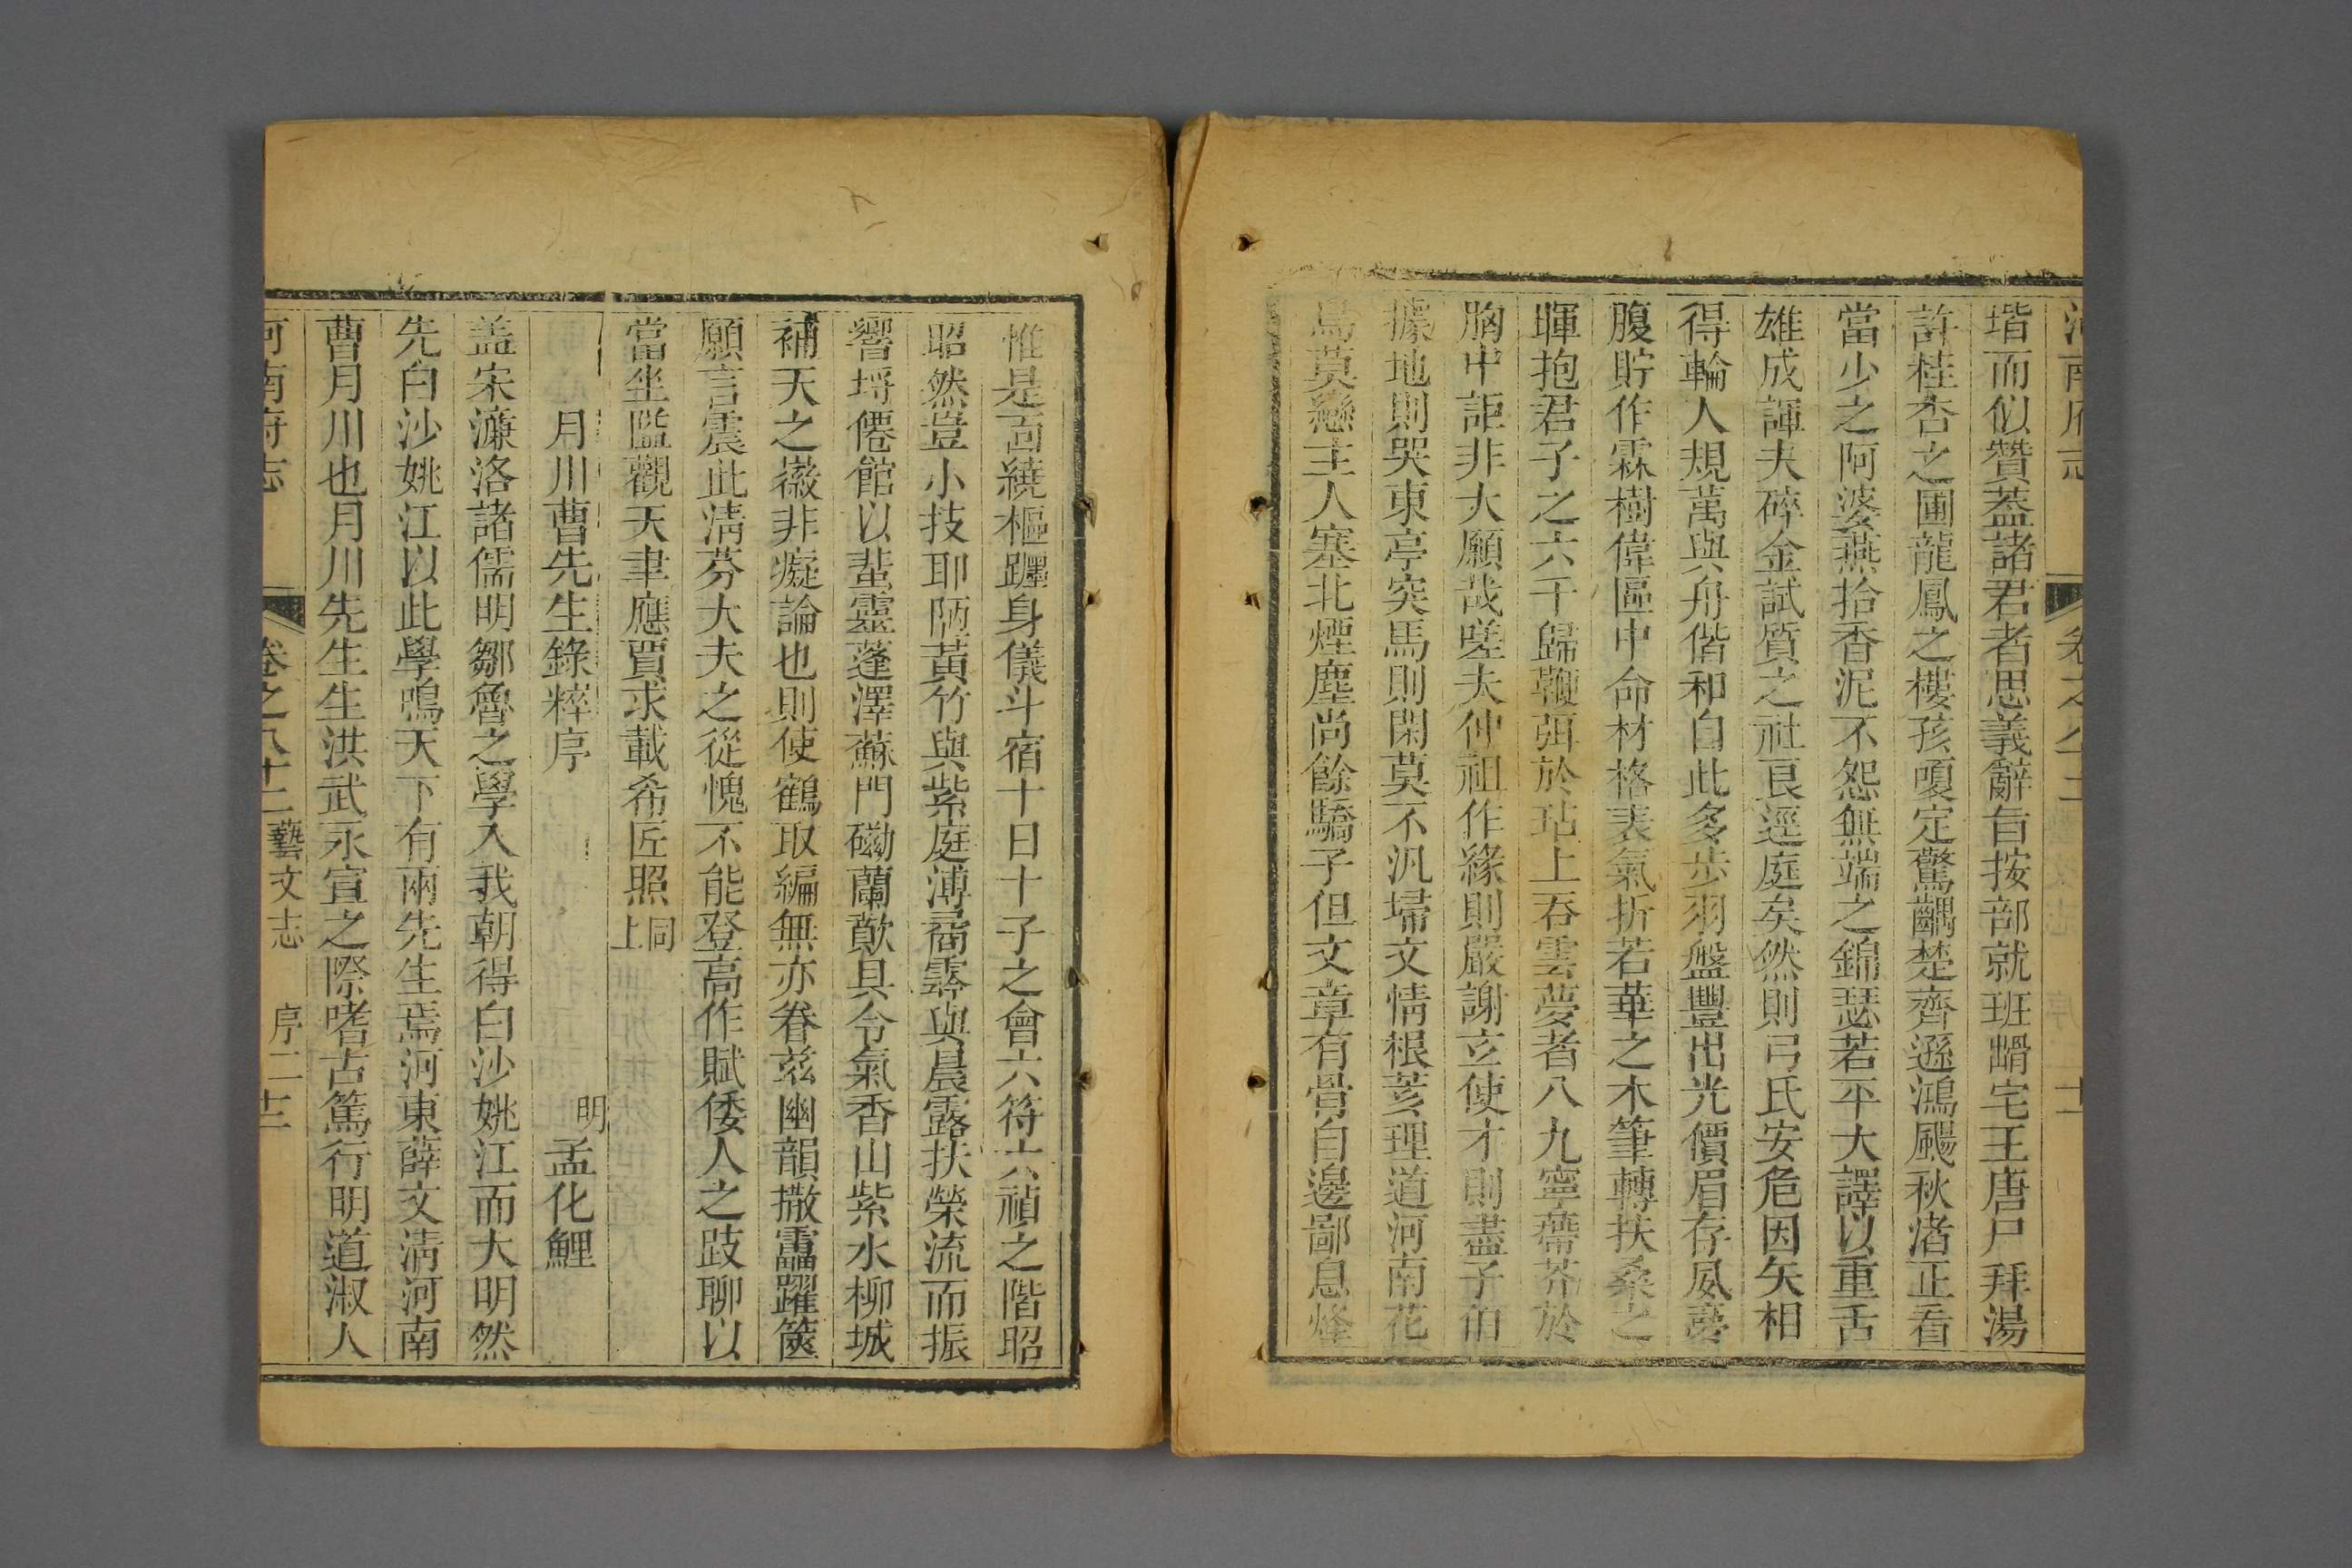 河南府志 卷之八十二
堦而似贊蓋諸君者思義辭旨按部就班㟙宅王唐尸拜湯
許桂杏之圃龍鳳之樓孩嗄定驚齵楚齊遜鴻颺秋渚正看
當少之阿婆燕拾香泥不怨無端之錦瑟若平大譯以重舌
雄成諢夫碎金試質之社艮逕庭矣然則弓氏安危因矢相
得輪人規萬與舟偕和自此多步羽盤豐出光價眉存夙夢
腹貯作霖樹偉區中命材格表氣折若華之木筆轉扶桑之
暉抱君子之六千歸鞭弭於玷上吞雲夢者八九寧蔕芥於
胸中詎非大願哉嗟夫仲祖作緣則嚴謝立使才則盡子伯
據地則哭東亭突馬則閑莫不汎埽文情根荄理道河南花
鳥莫戀主人塞北煙塵尚餘驕子但文章有骨自邊鄙息烽
惟是面繞樞躔身儀斗宿十日十子之會六符六禎之階昭
昭然豈小技耶陋黃竹與紫庭溥矞雲與晨露扶榮流而振
響埒僊館以蜚靈蓬澤蘇門磡蘭歊具令氣香山紫水柳城
補天之嶶非癡論也則使鶴取編無亦眷兹幽韻撒靁躍篋
願言震此淸芬大夫之從愧不能登高作賦倭人之跂聊以
當坐隘觀天聿應賈求載希匠照同上
月川曹先生錄粹序 明孟化鯉
盖宋濂洛諸儒明鄒魯之學入我朝得白沙姚江而大明然
先白沙姚江以此學鳴天下有兩先生焉河東薛文淸河南
曹月川也月川先生生洪武永宣之際嗜古篤行明道淑人
河南府志 卷之八十二 藝文志 序二 十二